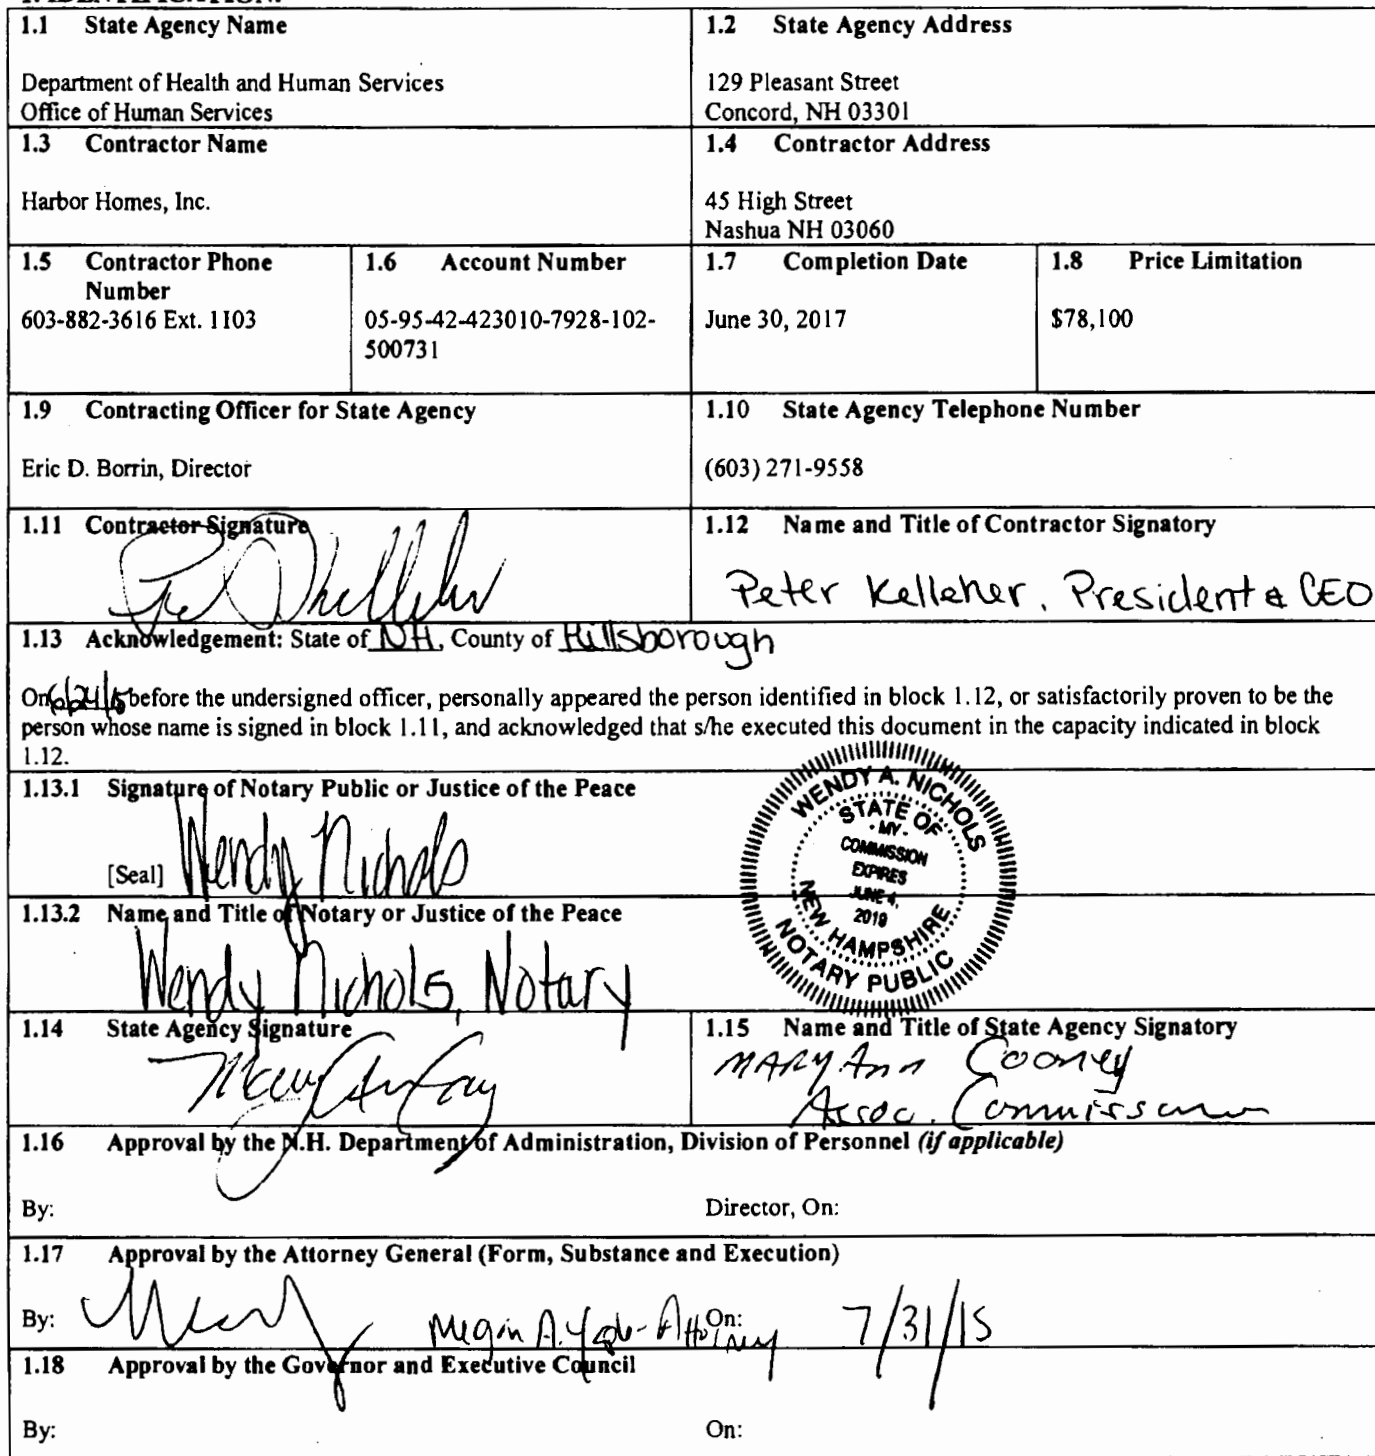 1.1 State Agency Name
Department of Health and Human Services
Office of Human Services
1.2 State Agency Address
129 Pleasant Street
Concord, NH 03301
1.3 Contractor Name
Harbor Homes, Inc.
1.4 Contractor Address
45 High Street
Nashua NH 03060
1.5 Contractor Phone
Number
603-882-3616 Ext. 1103
1.6 Account Number
05-95-42-423010-7928-102-
500731
1.7 Completion Date
June 30, 2017
1.8 Price Limitation
$78,100
1.9 Contracting Officer for State Agency
Eric D. Borrin, Director
1.10 State Agency Telephone Number
(603) 271-9558
1.11 Contractor Signature
1.12 Name and Title of Contractor Signatory
Peter Kelleher, President & CEO
1.13 Acknowledgement: State of NH, County of Hillsborough
On 6/24/15 before the undersigned officer, personally appeared the person identified in block 1.12, or satisfactorily proven to be the
person whose name is signed in block 1.11, and acknowledged that s/he executed this document in the capacity indicated in block
1.12.
1.13.1 Signature of Notary Public or Justice of the Peace
Wendy Nichols
[Seal]
WENDY A. NICHOLS
STATE OF
- MY -
COMMISSION
EXPIRES
JUNE 4,
2019
NEW HAMPSHIRE
NOTARY PUBLIC
1.13.2 Name and Title of Notary or Justice of the Peace
Wendy Nichols, Notary
1.14 State Agency Signature
1.15 Name and Title of State Agency Signatory
MARY Ann Cooney
Assoc. Commissioner
1.16 Approval by the N.H. Department of Administration, Division of Personnel (if applicable)
By: Director, On:
1.17 Approval by the Attorney General (Form, Substance and Execution)
By: Megan A. - Attorney On: 7/31/15
1.18 Approval by the Governor and Executive Council
By: On: